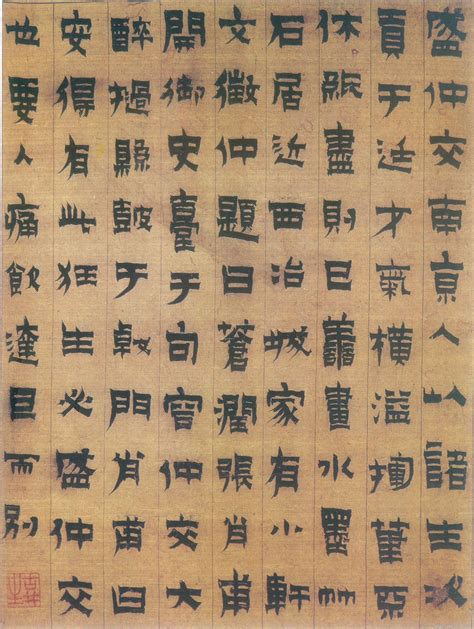 盛仲交南京人以諸生
貢于廷才氣橫溢揮筆
休紙盡則已善畫水墨竹
石居近西冶城家有小軒
文徵仲題曰蒼潤張肖甫
開御史臺于句容仲交大
醉撾縣鼓于戟門肖甫曰
安得有此狂生必盛仲交
也要入痛飲達旦而別